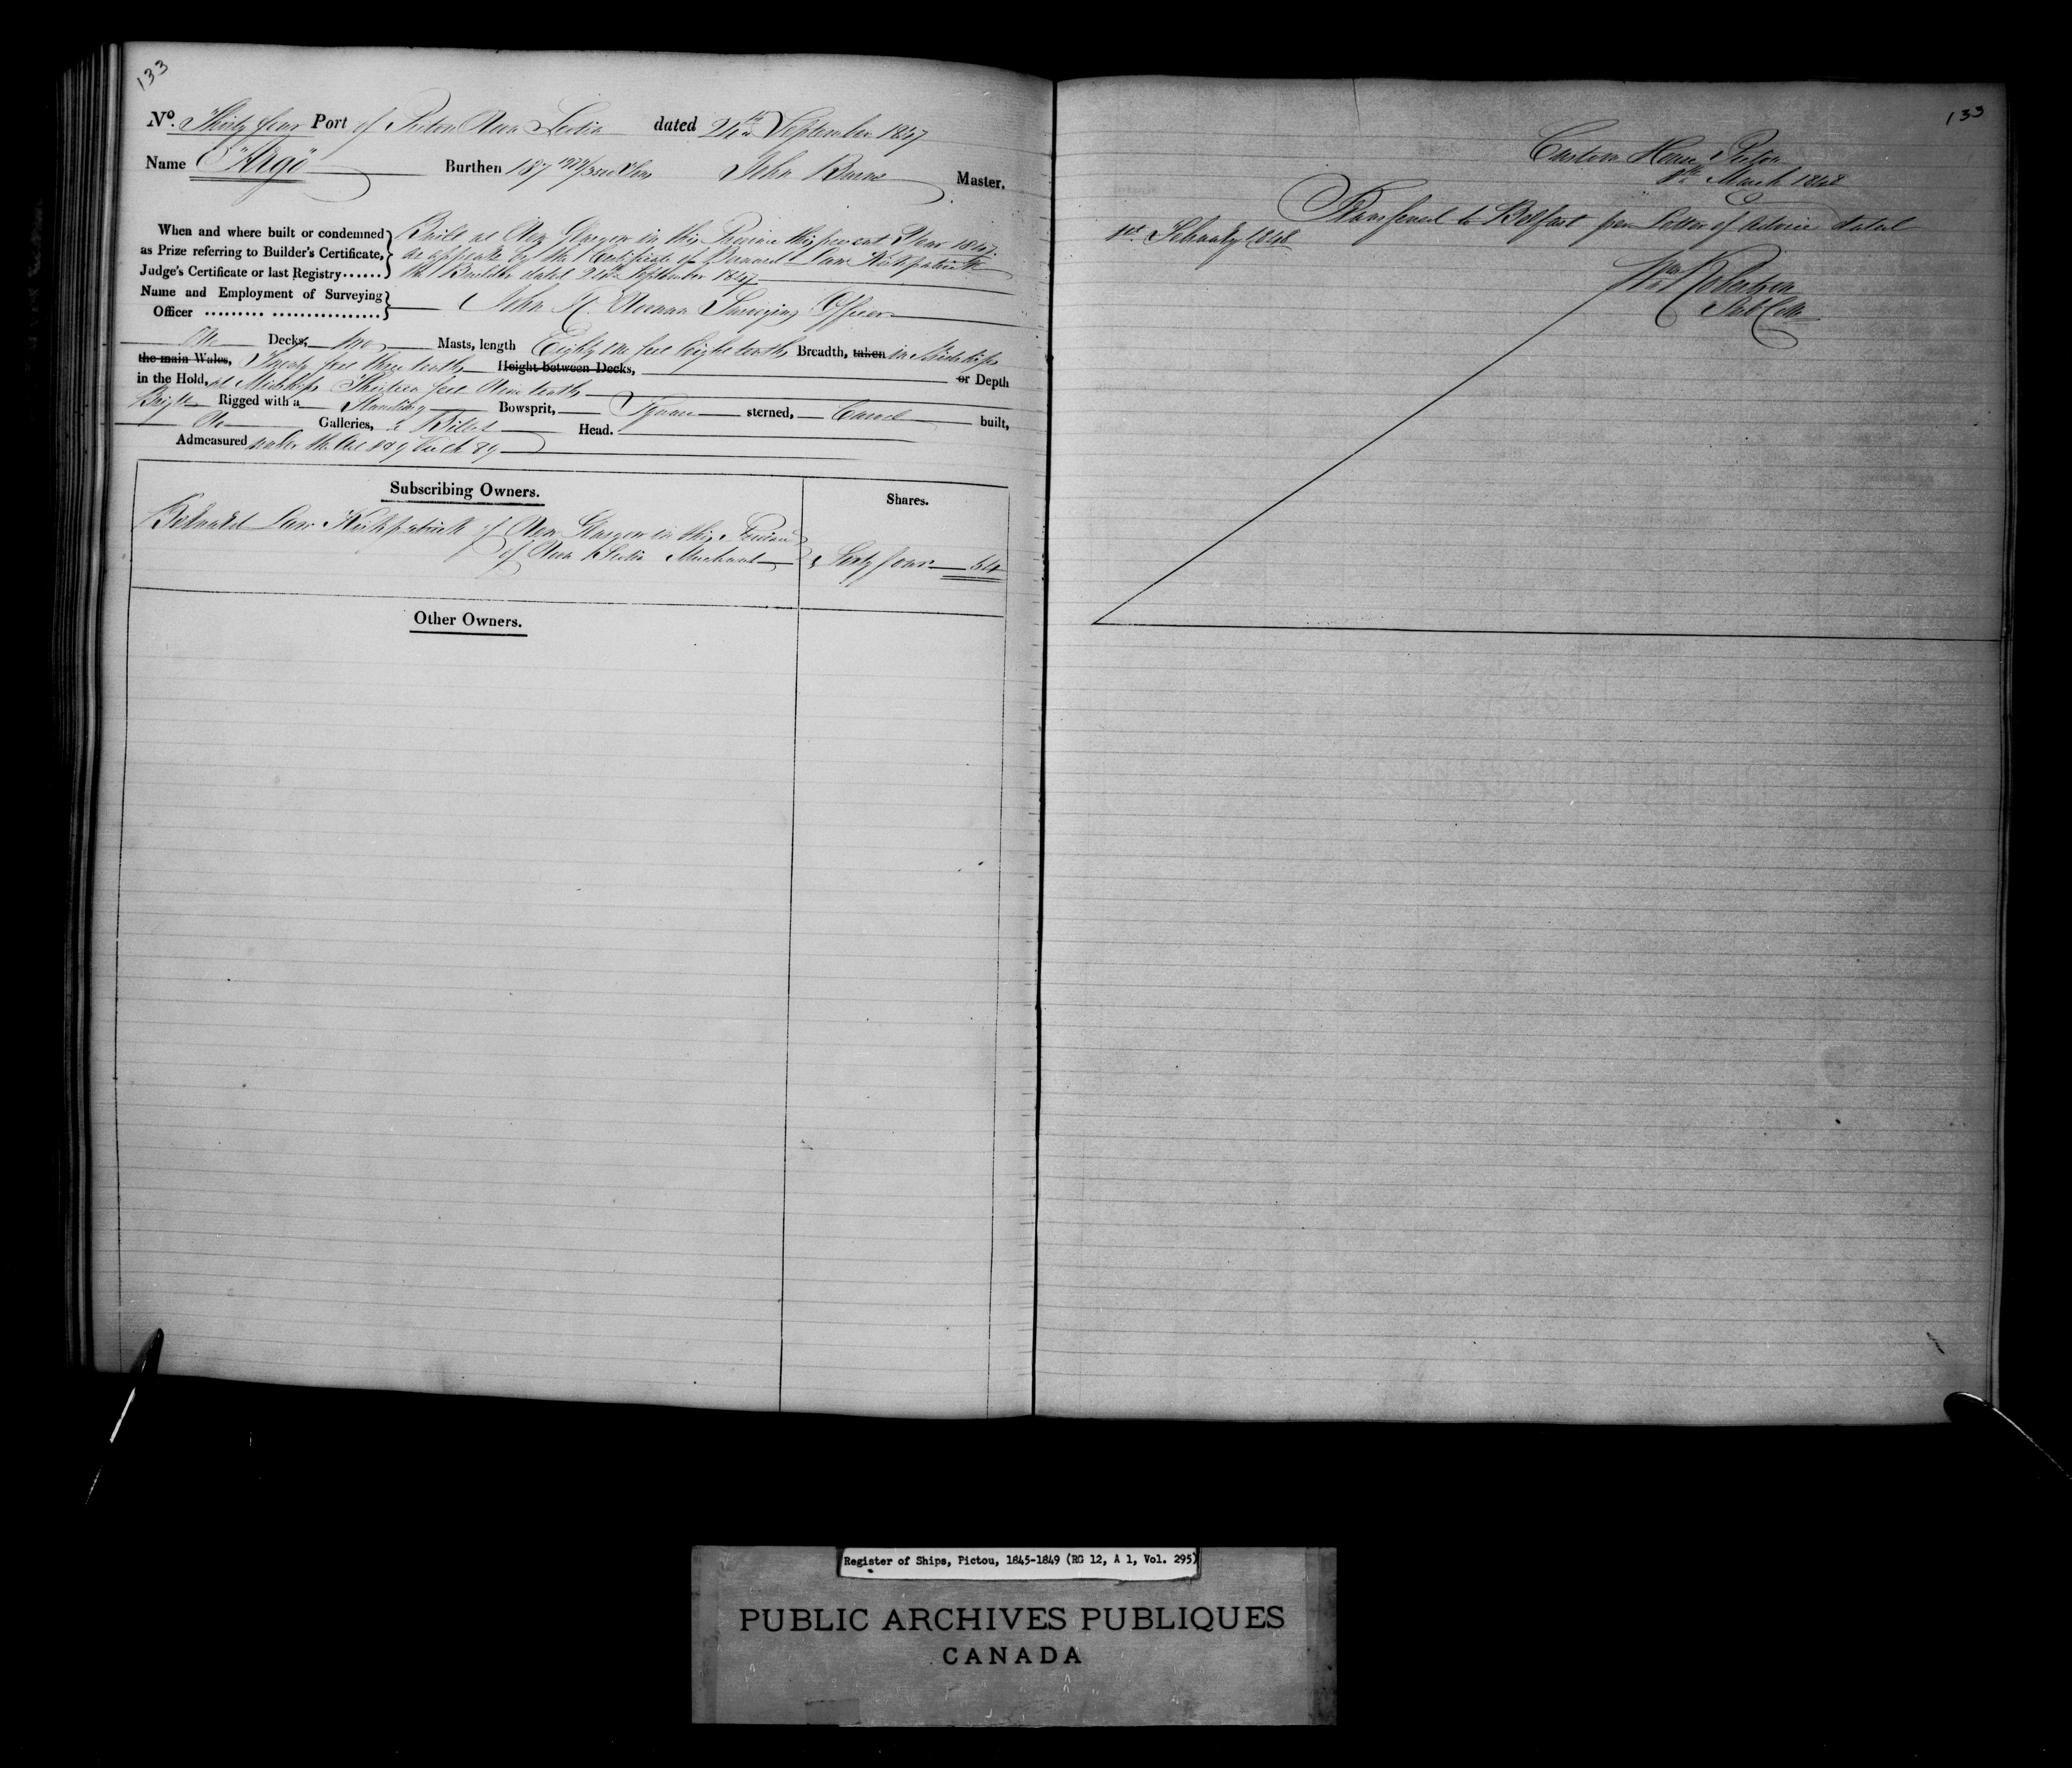 133
No. Thirty four Port of Pictou Nova Scotia dated 24th September 1847
Name "Argo" Burthen 187 Tons John Burns Master.
When and where built or condemned as Prize referring to Builder's Certificate, Judge's Certificate or last Registry......
Built at New Glasgow in this Province this present Year 1847
as appears by the Certificate of Law Kirkpatrick
the Builder dated September 1847
Name and Employment of Surveying Officer ......... ................
John Noonan Surveying Officer
One Decks, two Masts, length Eighty one feet Eight tenths Breadth, taken in Midships
the main Wales, Twenty feet three tenths Height between Decks, or Depth
in the Hold, at Midships Thirteen feet Nine tenths
Brigt Rigged with a Standing Bowsprit, Square sterned, Carvel built,
No Galleries, a Billet Head.
Admeasured under the Act 8 & 9 Vict Ch 89
Subscribing Owners. Shares.
Law Kirkpatrick of New Glasgow in this Province
of Nova Scotia Merchant Sixty four 64
Other Owners.
133
Custom House Pictou
8th March 1848
Transferred to Belfast per Letter of Advice dated
1st February 1848
Wm Robertson
Sub Coll
Register of Ships, Pictou, 1845-1849 (RG 12, A 1, Vol. 295)
PUBLIC ARCHIVES PUBLIQUES
CANADA